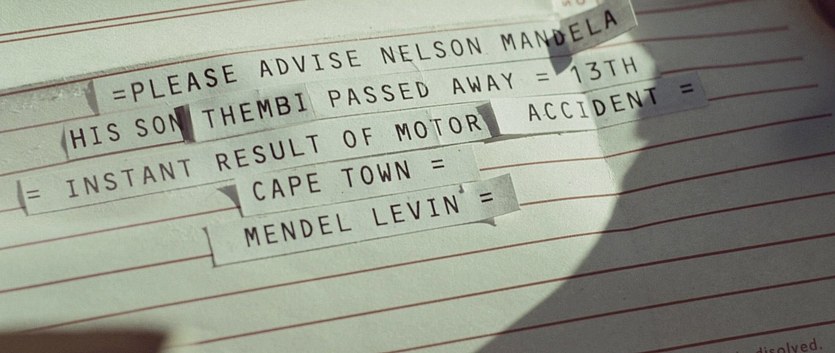 =PLEASE ADVISE NELSON MANDELA
HIS SON THEMBI PASSED AWAY = 13TH
= INSTANT RESULT OF MOTOR ACCIDENT =
CAPE TOWN =
MENDEL LEVIN =
disolved.